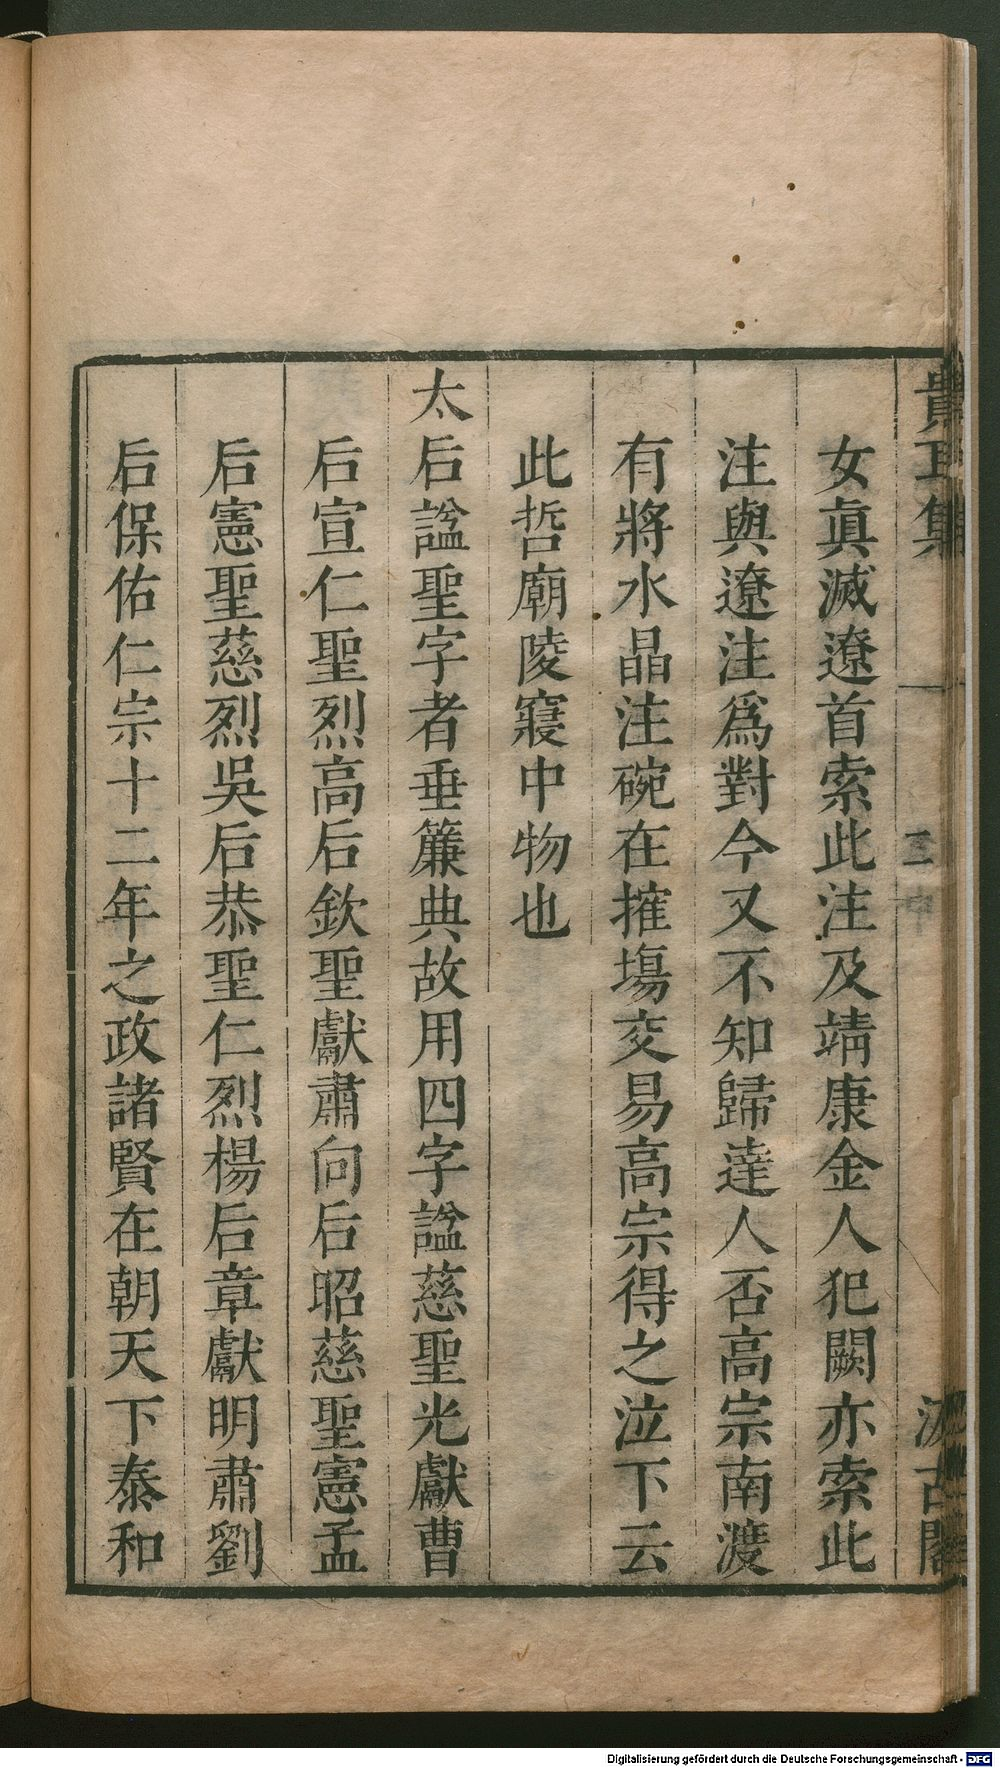 貴耳集
三
汲古閣
女眞滅遼首索此注及靖康金人犯闕亦索此
注與遼注爲對今又不知歸達人否高宗南渡
有將水晶注碗在搉塲交易高宗得之泣下云
此哲廟陵寢中物也
太后諡聖字者垂簾典故用四字諡慈聖光獻曹
后宣仁聖烈高后欽聖獻肅向后昭慈聖憲孟
后憲聖慈烈吳后恭聖仁烈楊后章獻明肅劉
后保佑仁宗十二年之政諸賢在朝天下泰和
Digitalisierung gefördert durch die Deutsche Forschungsgemeinschaft - DFG